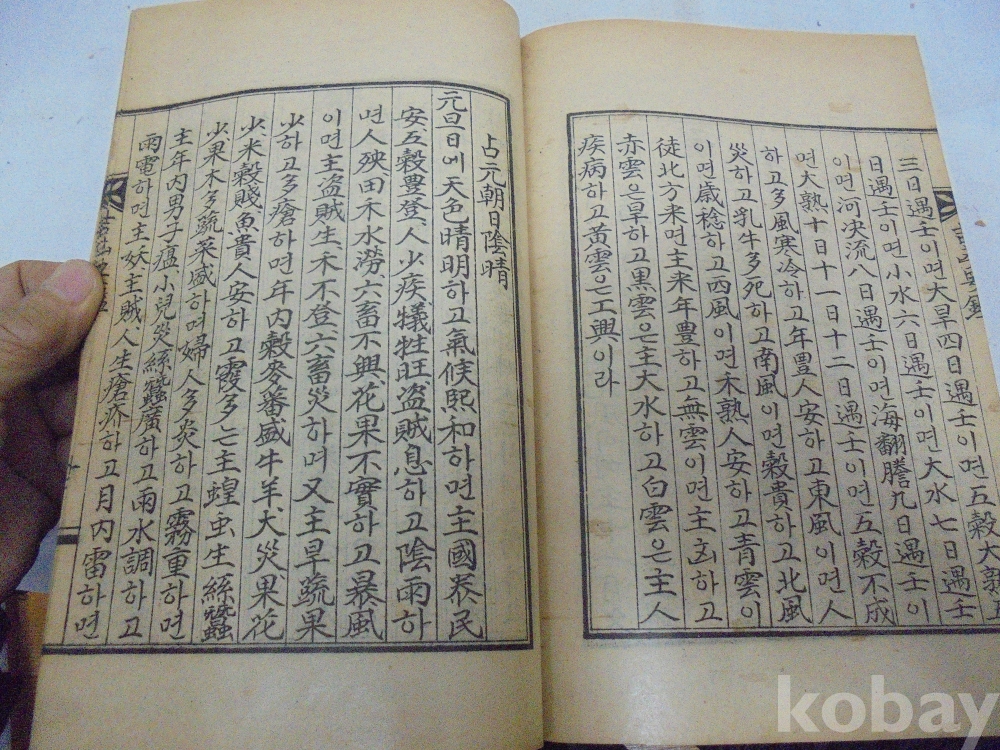 三日遇壬이면大旱四日遇壬이면五穀大熟
日遇壬이면小水六日遇壬이면大水七日遇壬
이면河决流八日遇壬이면海翻騰九日遇壬이
면大熟十日十一日十二日遇壬이면五穀不成
하고多風寒冷하고年豊人安하고東風이면人
災하고乳牛多死하고南風이면穀貴하고北風
이면歳稔하고西風이면禾熟人安하고青雲이
徒北方来면主来年豊하고無雲이면主凶하고
赤雲은旱하고黒雲은主大水하고白雲은主人
疾病하고黃雲은工興이라
占元朝日陰晴
元旦日에天色晴明하고氣候熙和하면主國泰民
安、五穀豊登、人少疾犠牲旺盗賊息하고陰雨하
면人殃、田禾水澇、六畜不興、花果不實하고暴風
이면主盗賊生、禾不登、六畜災하며又主旱蔬果
少하고多瘡하면年内穀麥蕃盛牛羊犬災、果花
少、米穀賤、魚貴人安하고霞多는主蝗虫生絲蠶
少、果木多、蔬菜盛하며婦人多灸하고霧重하면
主年内男子瘟、小兒災絲蠶廣하고雨水調하고
雨電하며主、妖主賊、人生瘡疥하고月内雷하면
kobay